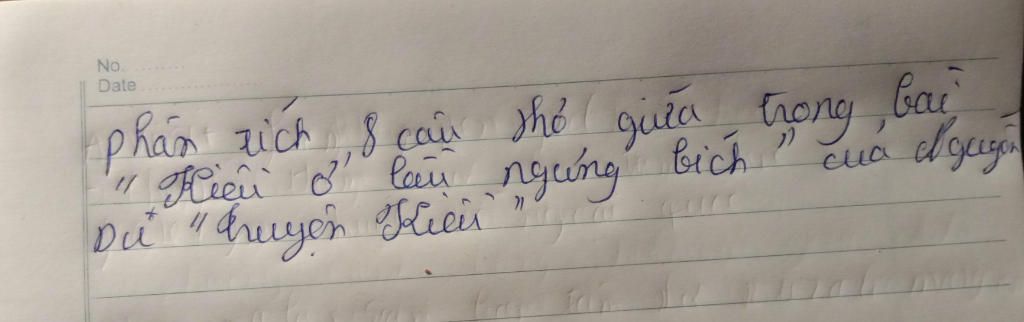 No.
Date
phân tích 8 câu thơ giữa trong bài
" Kiều ở lầu ngưng bích " của Nguyễn
Dư " truyện Kiều "